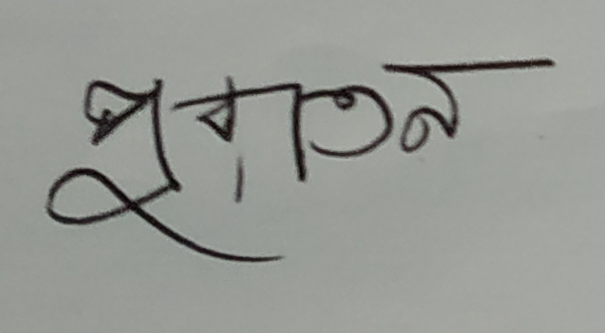 পুরাতন